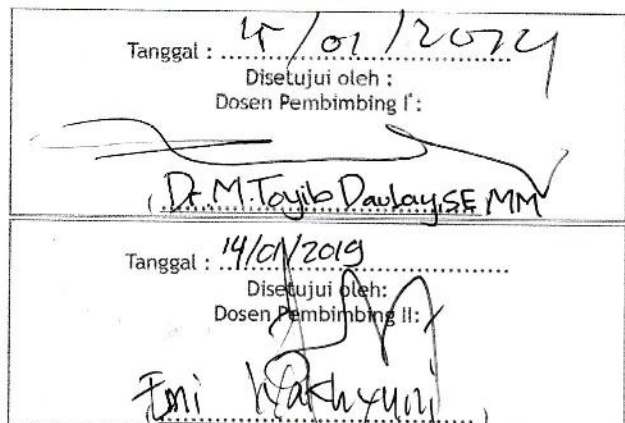 Tanggal : 15/01/2019
Disetujui oleh :
Dosen Pembimbing I :
( Dr. M. Toyib Daulay, SE MM
Tanggal : 14/01/2019
Disetujui oleh:
Dosen Pembimbing II:
Emi Wakhyuni )